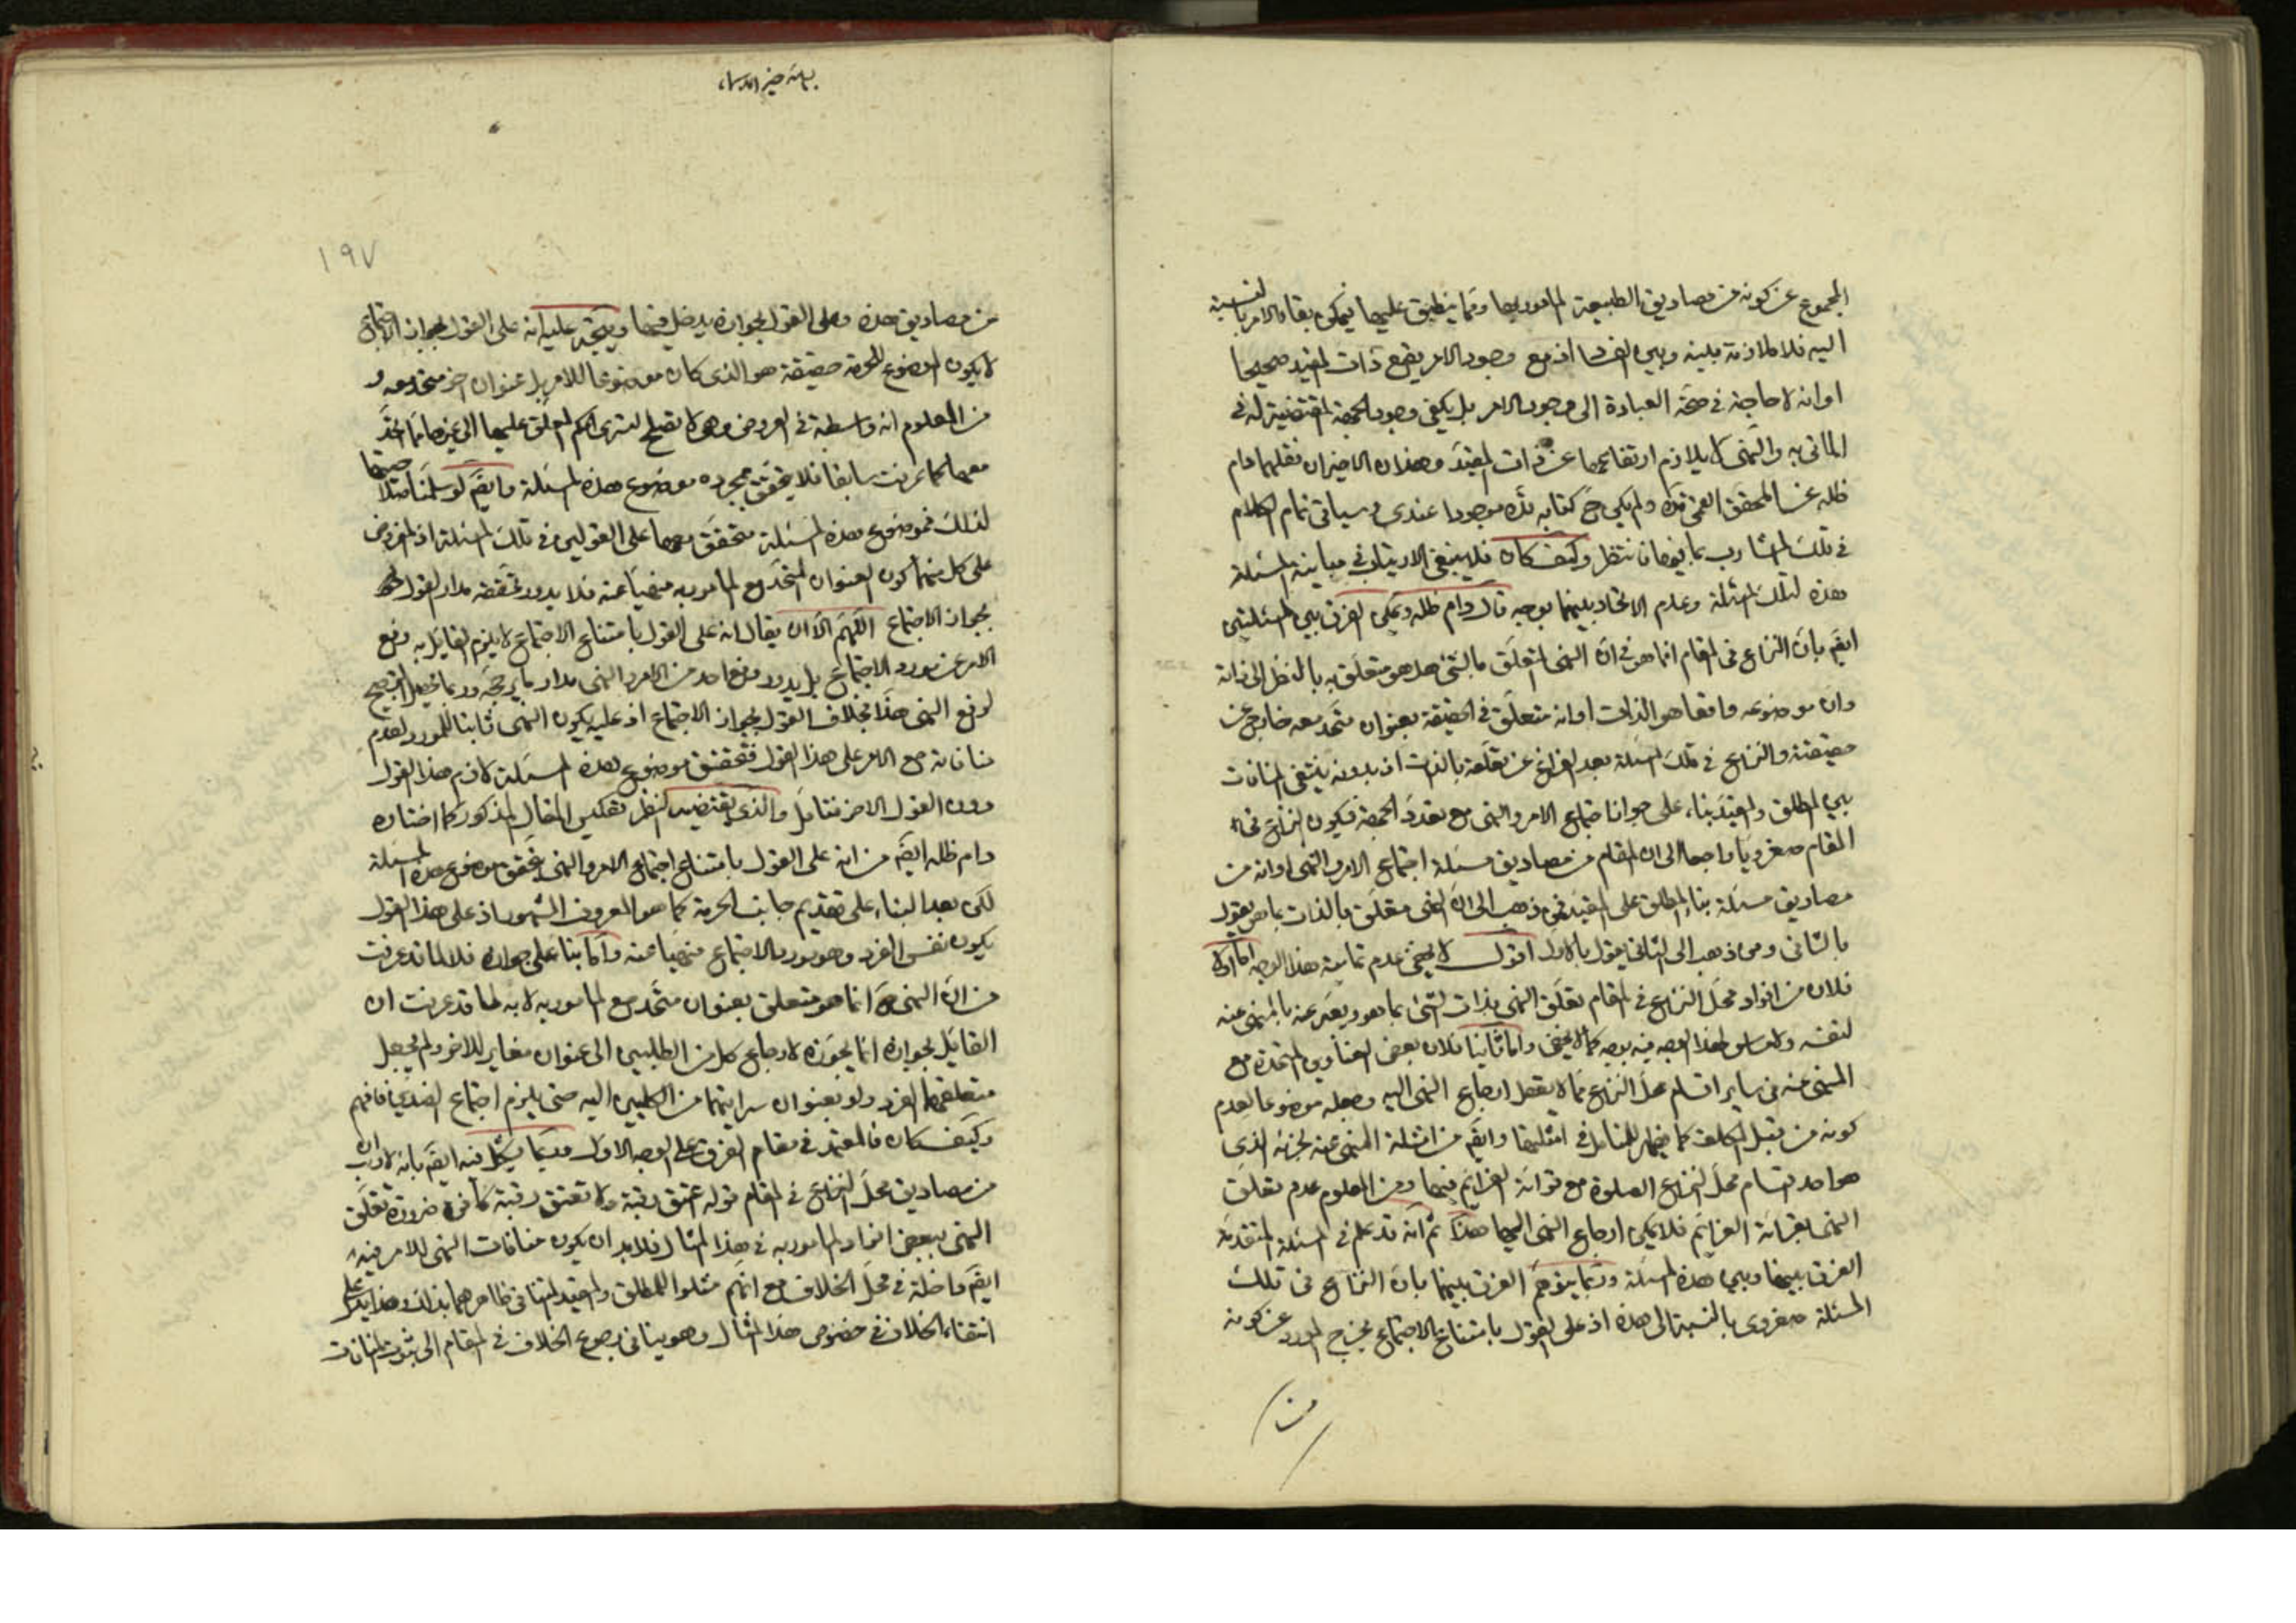 المجموع عن كونه من مصاديق الطبيعة المأمور بها ومما ينطبق عليها فيمكن بقاء الامر بالنسبة
اليه فلا ملازمة بينه وبين الفساد اذ مع وجود الامر يقع ذات المقيد صحيحا
او انه لا حاجة في صحة العبادة الى وجود الامر بل يكفي وجود الجهة المقتضية له في
الماتى به والنهى لا يلازم ارتفاعها عن ذات المقيد وهذان الاخيران نقلهما دام
ظله عن المحقق القمى قده ولم يكن ح كتابه قده موجودا عندى وسياتى تمام الكلام
في تلك المشارب بما فيها فانتظر وكيف كان فلا ينبغى الارتياب في مباينة المسئلة
هذه لتلك المسئلة وعدم الاتحاد بينهما بوجه قال دام ظله ويمكن الفرق بين المسئلتين
ايضَ بانّ النزاع في المقام انما هو في انّ النهى المتعلق بالشئ هل هو متعلق به بالنظر الى ذاته
وان موضوعه واقعا هو الذات او انه متعلق في الحقيقة بعنوان متّحد معه خارج عن
حقيقته والنزاع في تلك المسئلة بعد الفراغ عن تعلقه بالذات اذ بدونه ينتفى المنافات
بين المطلق والمقيد بناء على جواز اجتماع الامر والنهى مع تعدد الجهة فيكون النزاع في
المقام صغرويا راجعا الى ان المقام من مصاديق مسئلة اجتماع الامر والنهى او انه من
مصاديق مسئلة بناء المطلق على المقيد فمن ذهب الى ان النهى متعلق بالذات بما هى يقول
بالثانى ومن ذهب الى الثانى يقول بالاول اقول لا يخفى عدم تمامية هذا الوجه اما اولا
فلان من افراد محل النزاع في المقام تعلق النهى بذات الشئ بما هو ويعبر عنه بالمنهى عنه
لنفسه ولا مساس لهذا الوجه فيه بوجه كما لا يخفى واما ثانيا فلان بعض العناوين المتحدة مع
المنهى عنه في ساير اقسام محل النزاع مما لا يعقل ارجاع النهى اليه وجعله موضوعا لعدم
كونه من قبل المكلف كما يظهر للمتامل في امثلتها وايضَ من امثلة المنهى عنه لجزئه الذى
هو احد اقسام محل النزاع الصلوة مع قرائة العزايم فيها ومن المعلوم عدم تعلق
النهى بقرائة العزايم فلا يمكن ارجاع النهى اليها هذا ثم انه قد علم في المسئلة المتقدمة
الفرق بينها وبين هذه المسئلة وربما يتوهم الفرق بينهما بان النزاع في تلك
المسئلة صغروى بالنسبة الى هذه اذ على القول بامتناع الاجتماع يخرج المورد عن كونه
من
١٩٧
من مصاديق هذه وعلى القول بجوازه يدخل فيها ويتجه عليه انه على القول بجواز الاجتماع
لا يكون الموضوع للحرمة حقيقة هو الذى كان موضوعا للامر بل عنوان اخر متحد معه و
من المعلوم انه واسطة في العروض وهى لا تصلح لتسرى الحكم المعلق عليها الى غيرها مما اتحد
معها كما عرفت سابقا فلا يتحقق بمجرده موضوع هذه المسئلة وايضَ لو سلمنا
لذلك فموضوع هذه المسئلة متحقق معها على القولين في تلك المسئلة اذ المفروض
على كل منهما كون العنوان المتحد مع المأمور به منهيا عنه فلا يدور تحققه مدار القول
بجواز الاجتماع اللهم الا ان يقال انه على القول بامتناع الاجتماع لا يلزم القايل به رفع
الامر عن مورد الاجتماع بل يدور رفع احد من الامر والنهى مدار ما يرجحه وربما يحصل الترجيح
لرفع النهى هذا بخلاف القول بجواز الاجتماع اذ عليه يكون النهى ثابتا للمورد لعدم
منافاته مع الامر على هذا القول فتحقق موضوع هذه المسئلة لازم هذا القول
دون القول الاخر فتامل والذى يقتضيه النظر تعكيس المقال المذكور كما اختاره
دام ظله ايضَ من انه على القول بامتناع اجتماع الامر والنهى يتحقق موضوع هذه المسئلة
لكن بعد البناء على تقديم جانب الحرمة كما هو المعروف المشهور اذ على هذا القول
يكون نفس الفرد وهو مورد الاجتماع منهيا عنه واما بنا على جوازه فلا لما قد عرفت
من ان النهى ح انما هو متعلق بعنوان متحد مع المأمور به لا به لما قد عرفت ان
القايل بجوازه انما يجوزه لارجاع كل من الطلبين الى عنوان مغاير للاخر ولم يجعل
متعلقهما الفرد ولو بعنوان سرايتهما من الكليين اليه حتى يلزم اجتماع الضدين فافهم
وكيف كان فالمعتمد في مقام الفرق على الوجه الاول وربما يشكل فيه ايضَ بانه لا ريب ان
من مصاديق محل النزاع في المقام قوله اعتق رقبة ولا تعتق رقبة كافرة ضرورة تعلق
النهى ببعض افراد المأمور به في هذا المثال فلا بد ان يكون منافات النهى للامر فيه
ايضَ داخلة في محل الخلاف مع انهم مثلوا للمطلق والمقيد المتنافى ظاهرهما بذلك وهذا يدل على
انتفاء الخلاف في خصوص هذا المثال وهو ينافى رجوع الخلاف في المقام الى ثبوت المنافات